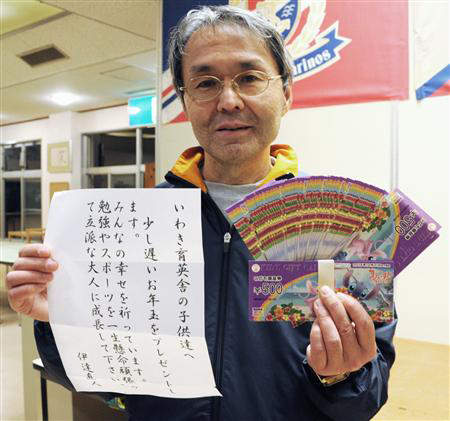 いわき育英舎の子供達へ
少し遅いお年玉をプレゼントし
ます。
みんなの幸せを祈っています。
勉強やスポーツを一生懸命頑張っ
て立派な大人に成長して下さい
伊達直人
こども商品券
¥500
rinos